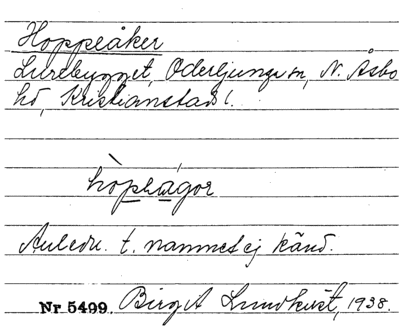 Hoppeåker
Lurebygget, Oderljunga sn, N. Åsbo
hd, Kristianstads l.
hòpeågor
Anledn. t. namnet ej känd.
Nr 5499. Birgit Lundkvist, 1938.